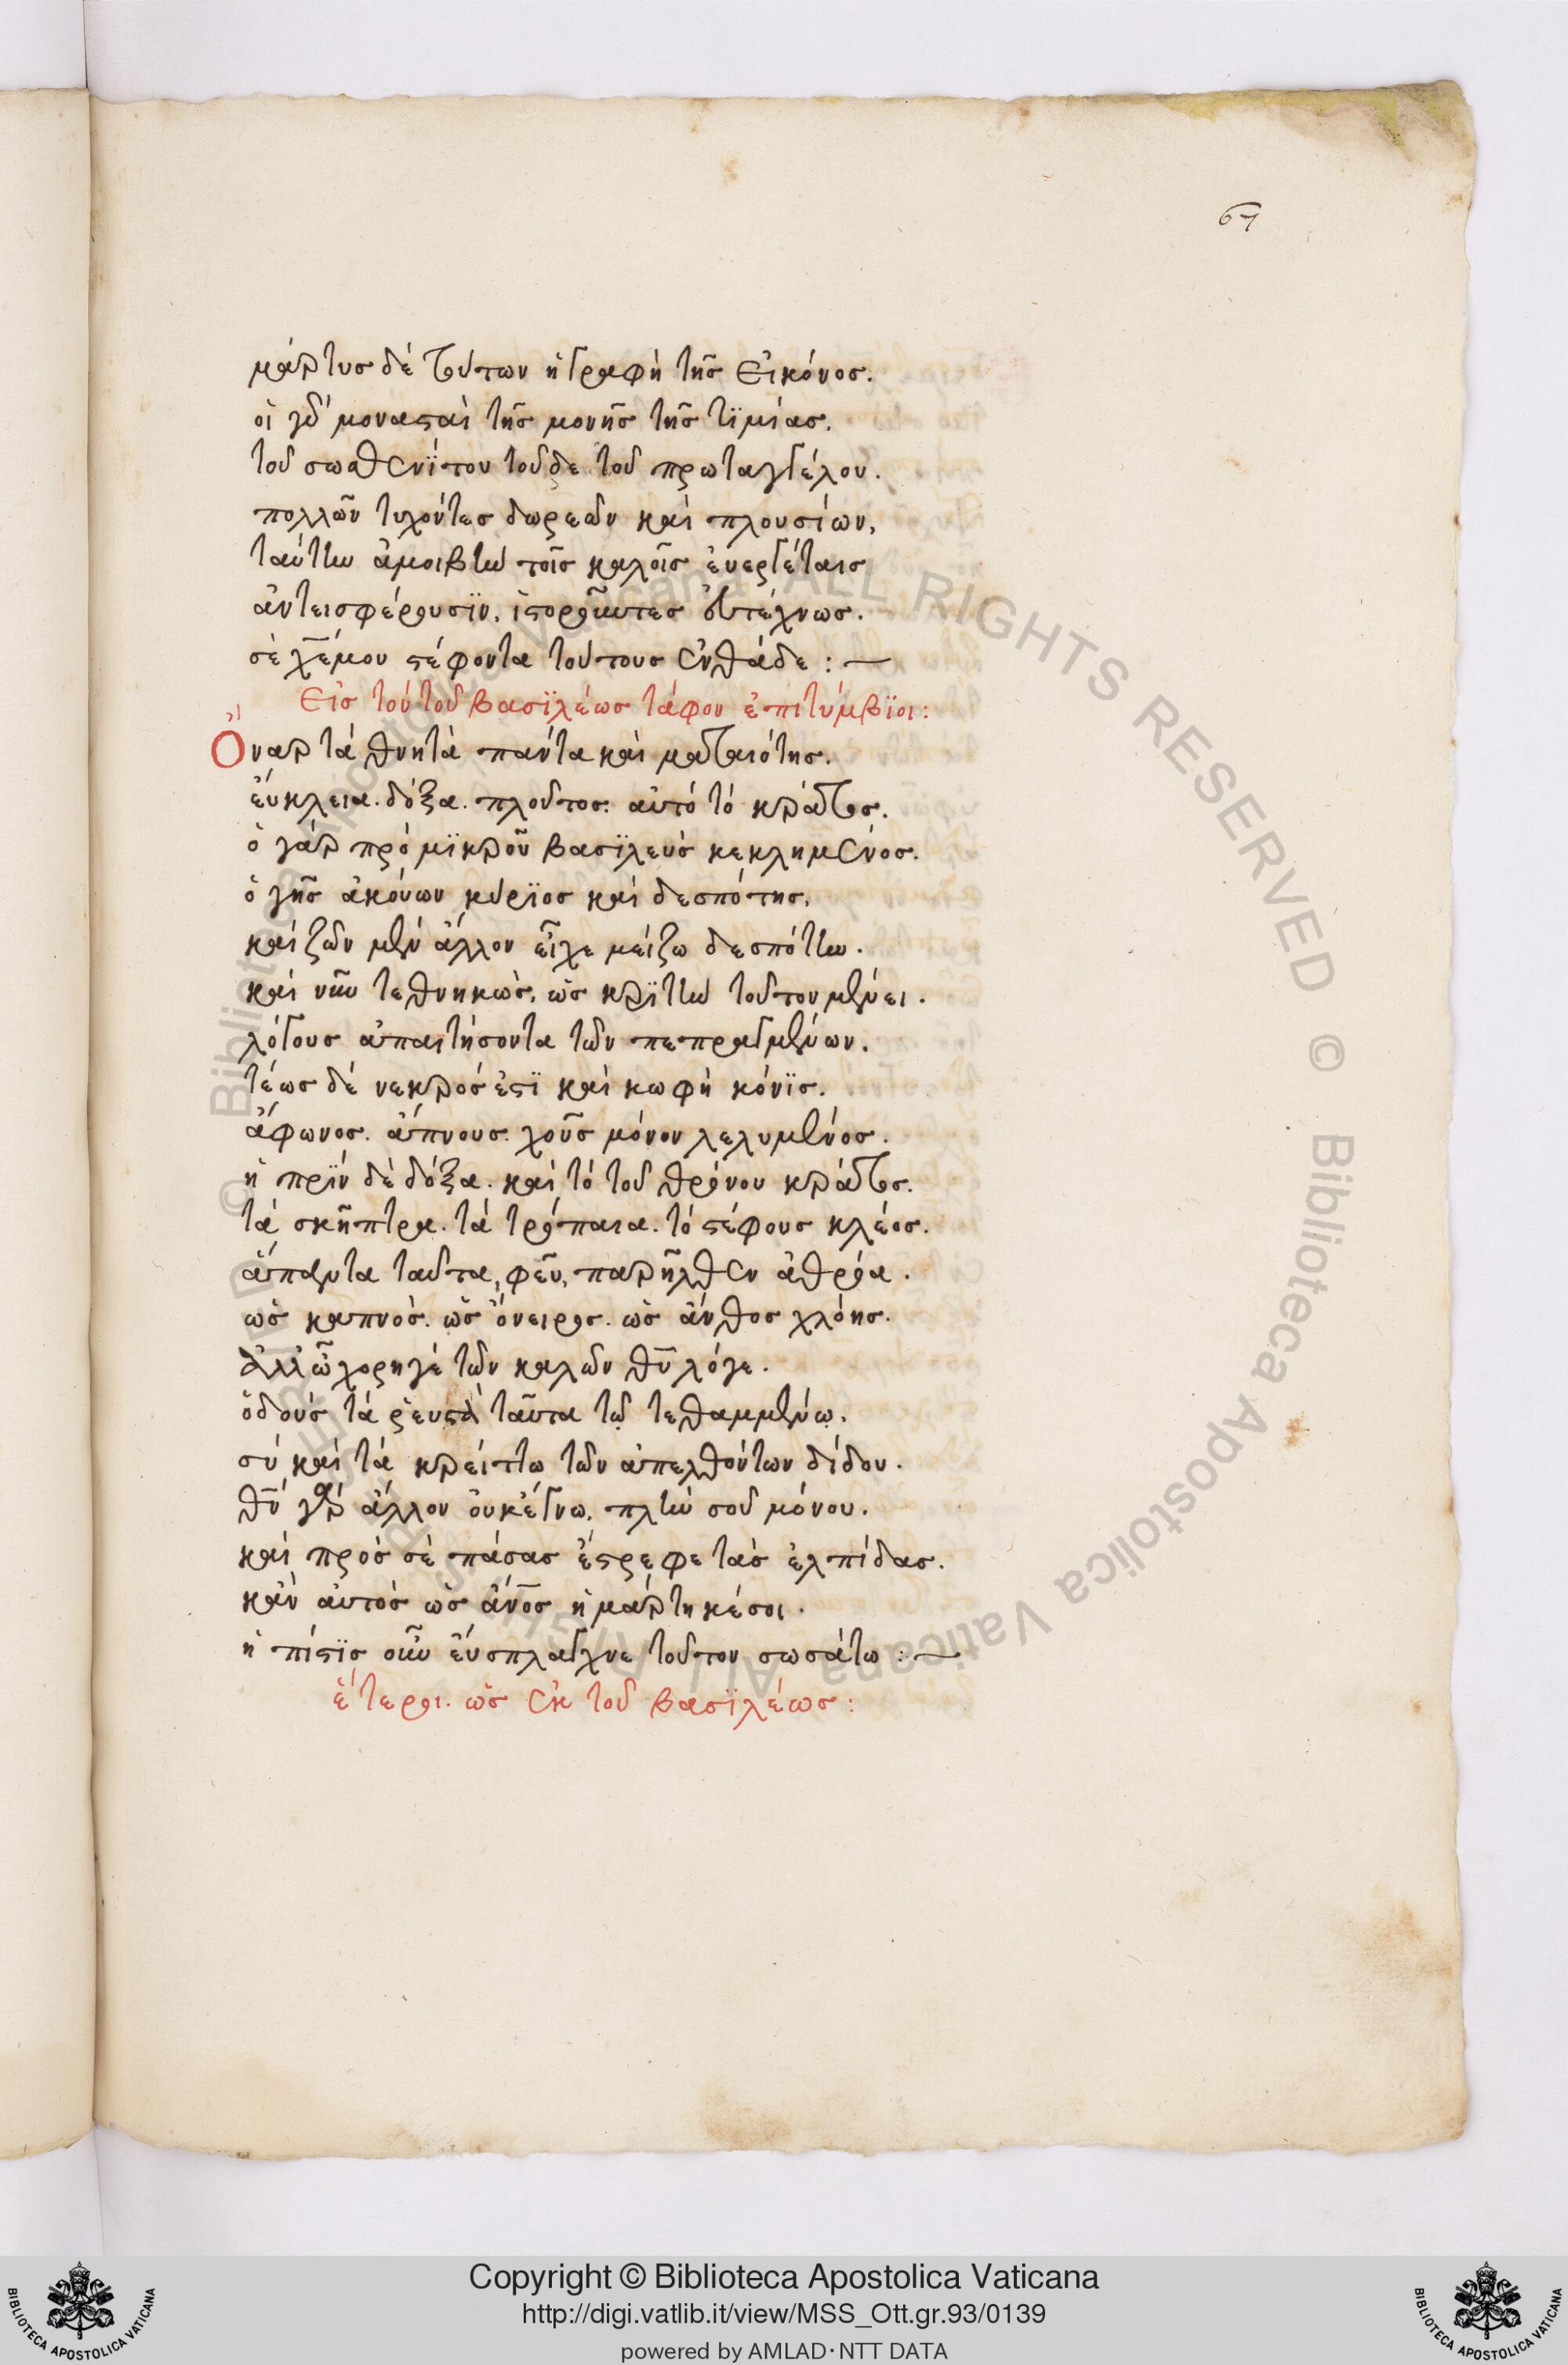 67
μάρτυσ δὲ τούτων ἡ γραφὴ τῆσ εἰκόνοσ.
οἱ γὰρ μονασταὶ τῆσ μονῆσ τῆσ τϊμίασ.
τοῦ σωσθενΐου τοῦδε τοῦ πρωταγγέλου.
πολλῶν τυχόντεσ δωρεῶν καὶ πλουσίων,
ταύτην ἀμοιβὴν τοῖσ καλοῖσ ἐυεργέταισ
ἀντεισφέρουσϊν. ἱστοροῦντεσ ἐντέχνωσ.
σὲ χε̅ μου στέφοντα τούτουσ ἐνθάδε : —
εἰσ τὸν τοῦ βασϊλέωσ τάφον ἐπιτύμβϊοι :
Ὄναρ τὰ θνητὰ πάντα καὶ ματαιότησ.
ἔυκλεια. δόξα. πλοῦτοσ. αὐτὸ τὸ κράτοσ.
ὁ γὰρ πρὸ μϊκροῦ βασϊλεὺσ κεκλημένοσ.
ὁ γῆσ ἀκούων κύρϊοσ καὶ δεσπότησ.
καὶ ζῶν μὲν ἄλλον εἶχε μείζω δεσπότην.
καὶ νῦν τεθνηκὼσ, ὡσ κρϊτὴν τοῦτον μένει.
λόγουσ ἀπαιτήσοντα τῶν πεπραγμένων.
τέωσ δὲ νεκρόσ ἐστϊ καὶ κωφὴ κόνϊσ.
ἄφωνοσ. ἄπνουσ. χοῦσ μόνον λελυμένοσ.
ἡ πρϊν δὲ δόξα. καὶ τὸ τοῦ θρόνου κράτοσ.
τὰ σκῆπτρα. τὰ τρόπαια. τὸ στέφουσ κλέοσ.
ἅπαντα ταῦτα, φεῦ, παρῆλθεν ἀθρόα.
ὡσ καπνὸσ. ὡσ ὄνειροσ. ὡσ ἄνθοσ χλόησ.
ἀλλ' ὦ χορηγὲ τῶν καλῶν θυ̅ λόγε.
ὁ δοὺσ τὰ ῥευστὰ ταῦτα τῷ τεθαμμένῳ.
σὺ καὶ τὰ κρείττω τῶν ἀπελθόντων δίδου.
θν̅ γὰρ ἄλλον ὀυκ ἔγνω. πλὴν σοῦ μόνου.
καὶ πρὸσ σὲ πάσασ ἔστρεφε τὰσ ἐλπίδασ.
κἂν αὐτὸσ ὡσ ἄνοσ̅ ἡμάρτηκέ σοι.
ἡ πίστϊσ οὖν ἔυσπλαγχνε τοῦτον σωσάτω : —
ἕτεροι. ὡσ ἐκ τοῦ βασϊλέωσ :
© Biblioteca Apostolica Vaticana ALL RIGHTS RESERVED © Biblioteca Apostolica Vaticana ALL RIGHTS RESERVED
BIBLIOTECA APOSTOLICA VATICANA
Copyright © Biblioteca Apostolica Vaticana
http://digi.vatlib.it/view/MSS_Ott.gr.93/0139
powered by AMLAD·NTT DATA
BIBLIOTECA APOSTOLICA VATICANA